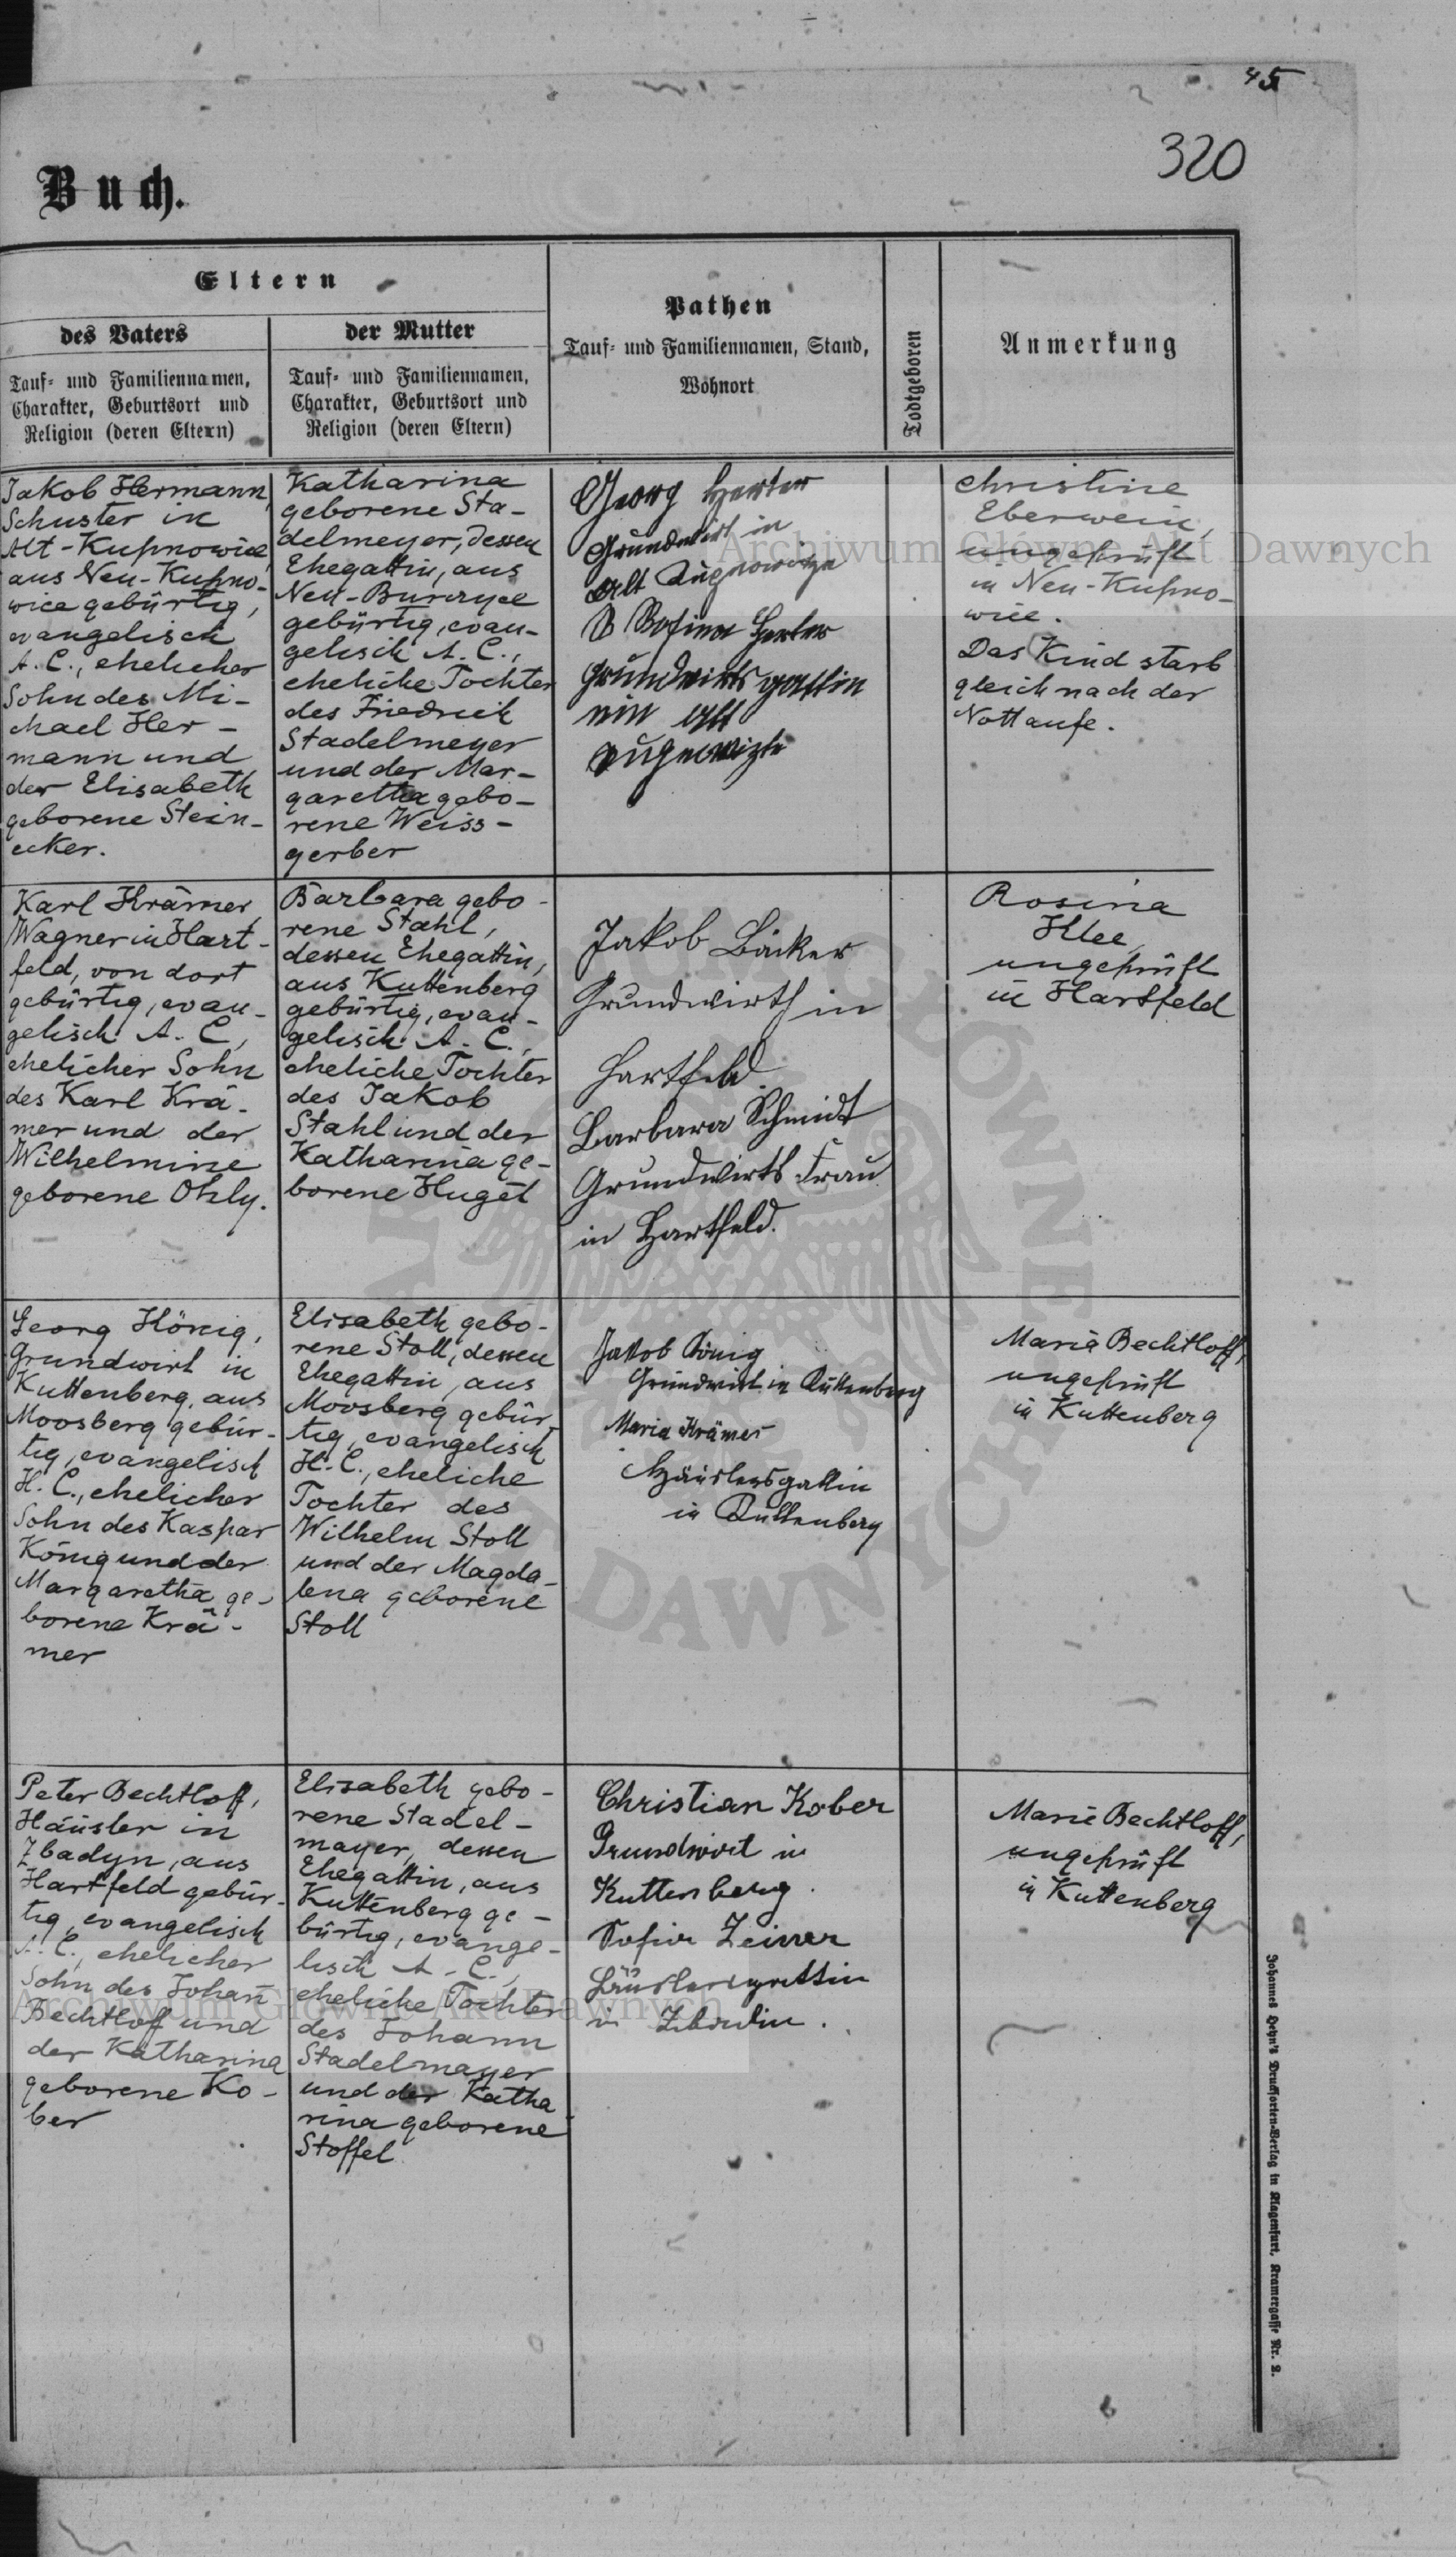 45
320
Buch.
Eltern
des Vaters
Tauf- und Familiennamen,
Charakter, Geburtsort und
Religion (deren Eltern)
der Mutter
Tauf- und Familiennamen,
Charakter, Geburtsort und
Religion (deren Eltern)
Pathen
Tauf- und Familiennamen, Stand,
Wohnort
Todtgeboren
Anmerkung
Jakob Hermann,
Schuster in
Alt-Kupnowice,
aus Neu-Kupno-
wice gebürtig,
evangelisch
A. C., ehelicher
Sohn des Mi-
chael Her-
mann und
der Elisabeth
geborene Stein-
ecker.
Katharina
geborene Sta-
delmeyer, dessen
Ehegattin, aus
Neu-Burczyce
gebürtig, evan-
gelisch A. C.,
eheliche Tochter
des Friedrich
Stadelmeyer
und der Mar-
garetha gebo-
rene Weiss-
gerber
Georg Herter
Grundwirt in
Alt
Rosina Herter
Grundwirtsgattin
Alt
Christine
Eberwein,
ungeprüft
in Neu-Kupno-
wice.
Das Kind starb
gleich nach der
Nottaufe.
Karl Krämer,
Wagner in Hart-
feld, von dort
gebürtig, evan-
gelisch A. C,
ehelicher Sohn
des Karl Krä-
mer und der
Wilhelmine
geborene Ohly.
Barbara gebo-
rene Stahl,
dessen Ehegattin,
aus Kuttenberg
gebürtig, evan-
gelisch A. C.,
eheliche Tochter
des Jakob
Stahl und der
Katharina ge-
borene Hugel
Jakob Bäcker
Grundwirth in
Hartfeld
Barbara Schmidt
Grundwirts Frau
in Hartfeld.
Rosina
Klee,
ungeprüft
in Hartfeld
Georg König,
Grundwirt in
Kuttenberg, aus
Moosberg gebür-
tig, evangelisch
H. C., ehelicher
Sohn des Kaspar
König und der
Margaretha ge-
borene Krä-
mer
Elisabeth gebo-
rene Stoll, dessen
Ehegattin, aus
Moosberg gebür-
tig, evangelisch
H. C., eheliche
Tochter des
Wilhelm Stoll
und der Magda-
lena geborene
Stoll
Jakob König
Grundwirt in Kuttenberg
Maria Krämer
Häuslersgattin
in Kuttenberg
Maria Bechtloff,
ungeprüft
in Kuttenberg
Peter Bechtloff,
Häusler in
Zbadyn, aus
Hartfeld gebür-
tig, evangelisch
A. C., ehelicher
Sohn des Johan
Bechtloff und
der Katharina
geborene Ko-
ber
Elisabeth gebo-
rene Stadel-
mayer, dessen
Ehegattin, aus
Kuttenberg ge-
bürtig, evange-
lisch A. C.,
eheliche Tochter
des Johann
Stadelmayer
und der Katha
rina geborene
Stoffel
Christian Kober
Grundwirt in
Kuttenberg.
Sofia
Häuslersgattin
in
Maria Bechtloff,
ungeprüft
in Kuttenberg
Johannes Heyn's Drucksorten-Verlag in Klagenfurt, Kramergasse Nr. 2.
Archiwum Główne Akt Dawnych
Archiwum Główne Akt Dawnych